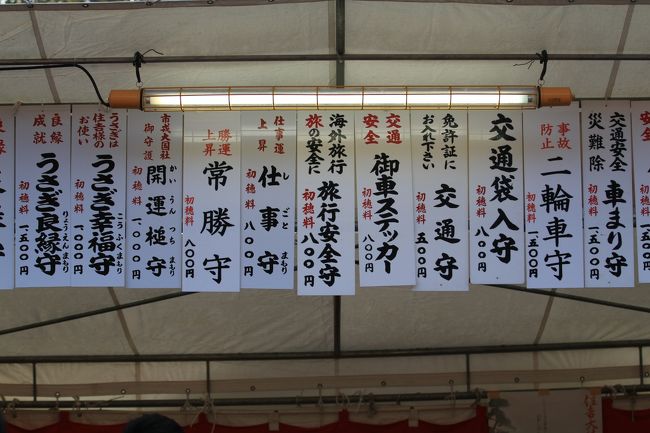 交通安全
災難除
車まり守
初穂料 一、五〇〇円
事故
防止
二輪車守
初穂料 八〇〇円
交通袋入守
初穂料 八〇〇円
免許証に
お入れ下さい
交通守
初穂料 一、五〇〇円
交通
安全
御車ステッカー
初穂料 八〇〇円
海外旅行
旅の安全に
旅行安全守
初穂料 八〇〇円
仕事運
上昇
仕事守
しごとまもり
初穂料 八〇〇円
勝運
上昇
常勝守
初穂料 八〇〇円
市戎大国社
御守護
開運槌守
かいうんつちまもり
初穂料 一、〇〇〇円
うさぎは
住吉様の
お使い
うさぎ幸福守
こうふくまもり
初穂料 一、〇〇〇円
良縁
成就
うさぎ良縁守
りょうえんまもり
初穂料 一、五〇〇円